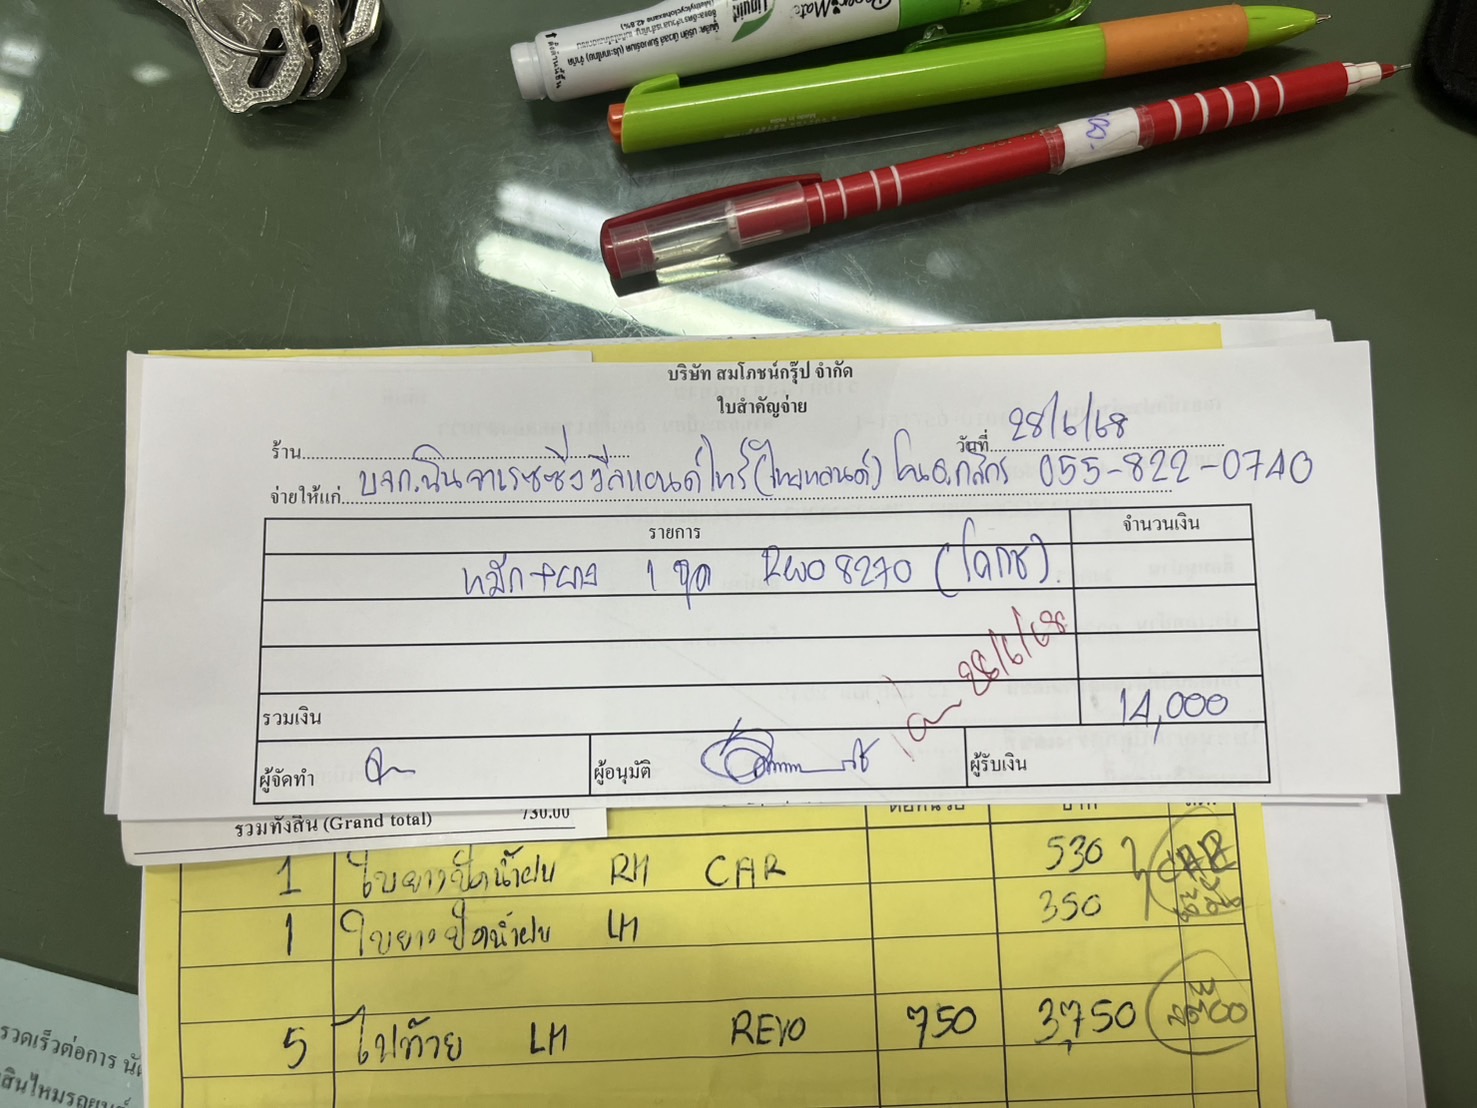 Liquid
Paper Mate
(Methylcyclohexane 42.8%)
บริษัท สมโภชน์กรุ๊ป จำกัด
ใบสำคัญจ่าย
ร้าน
วันที่ 28/6/68
จ่ายให้แก่ บจก.นินจาเรซซิ่งวีลแอนด์ไทร์(ไทยแลนด์) โอน ธ.กสิกร 055-822-0740
รายการ จำนวนเงิน
1 ชุด 8270
28/6/68
รวมเงิน 14,000
ผู้จัดทำ ผู้อนุมัติ ผู้รับเงิน
รวมทั้งสิ้น (Grand total) 730.00
1 ใบยางปัดน้ำฝน RH CAR 530
1 ใบยางปัดน้ำฝน LH 350
5 ไฟท้าย LH REVO 750 3,750
รวดเร็วต่อการ
สินไหมรถยนต์